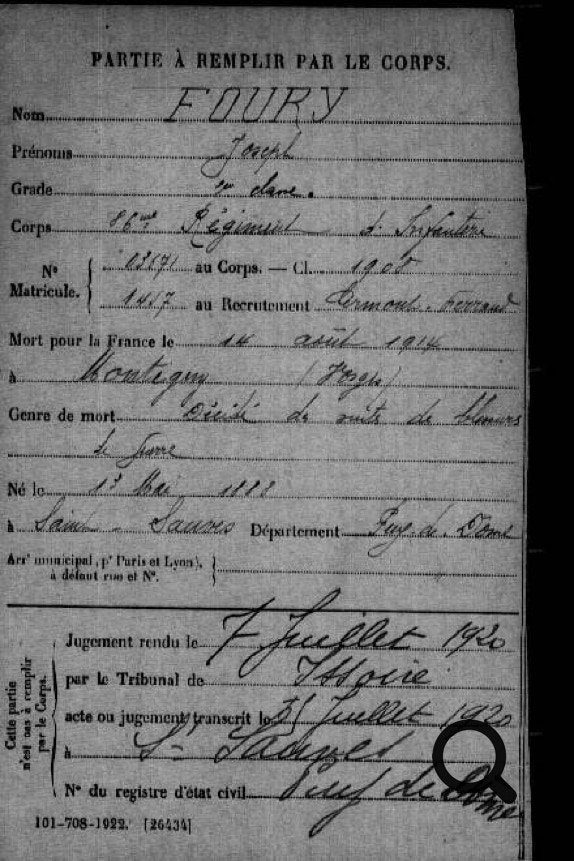 PARTIE À REMPLIR PAR LE CORPS.
Nom FOURY
Prénoms Joseph
Grade classe.
Corps 86me Régiment d'Infanterie
N° Matricule. { 13671 au Corps. — Cl. 1900
1417 au Recrutement Clermont-Ferrand
Mort pour la France le 14 août 1914
à Montigny (Vosges)
Genre de mort Décédé de suites de blessures
de guerre
Né le 13 Mai
à Saint-Sauves Département Puy-de-Dome
Arrt municipal (pr Paris et Lyon), à défaut rue et N°. }
Cette partie n'est pas à remplir par le Corps.
Jugement rendu le 7 Juillet 1920
par le Tribunal de Issoire
acte ou jugement transcrit le 31 Juillet 1920
à St Sauves
N° du registre d'état civil Puy de Dome
101-708-1922. [26434]